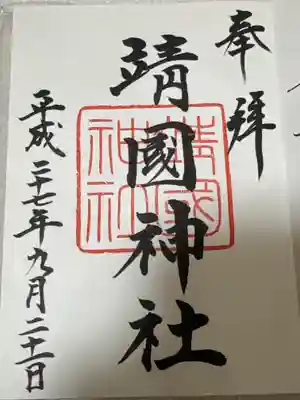 奉拝
靖國神社
靖国
神社
平成二十七年九月二十一日